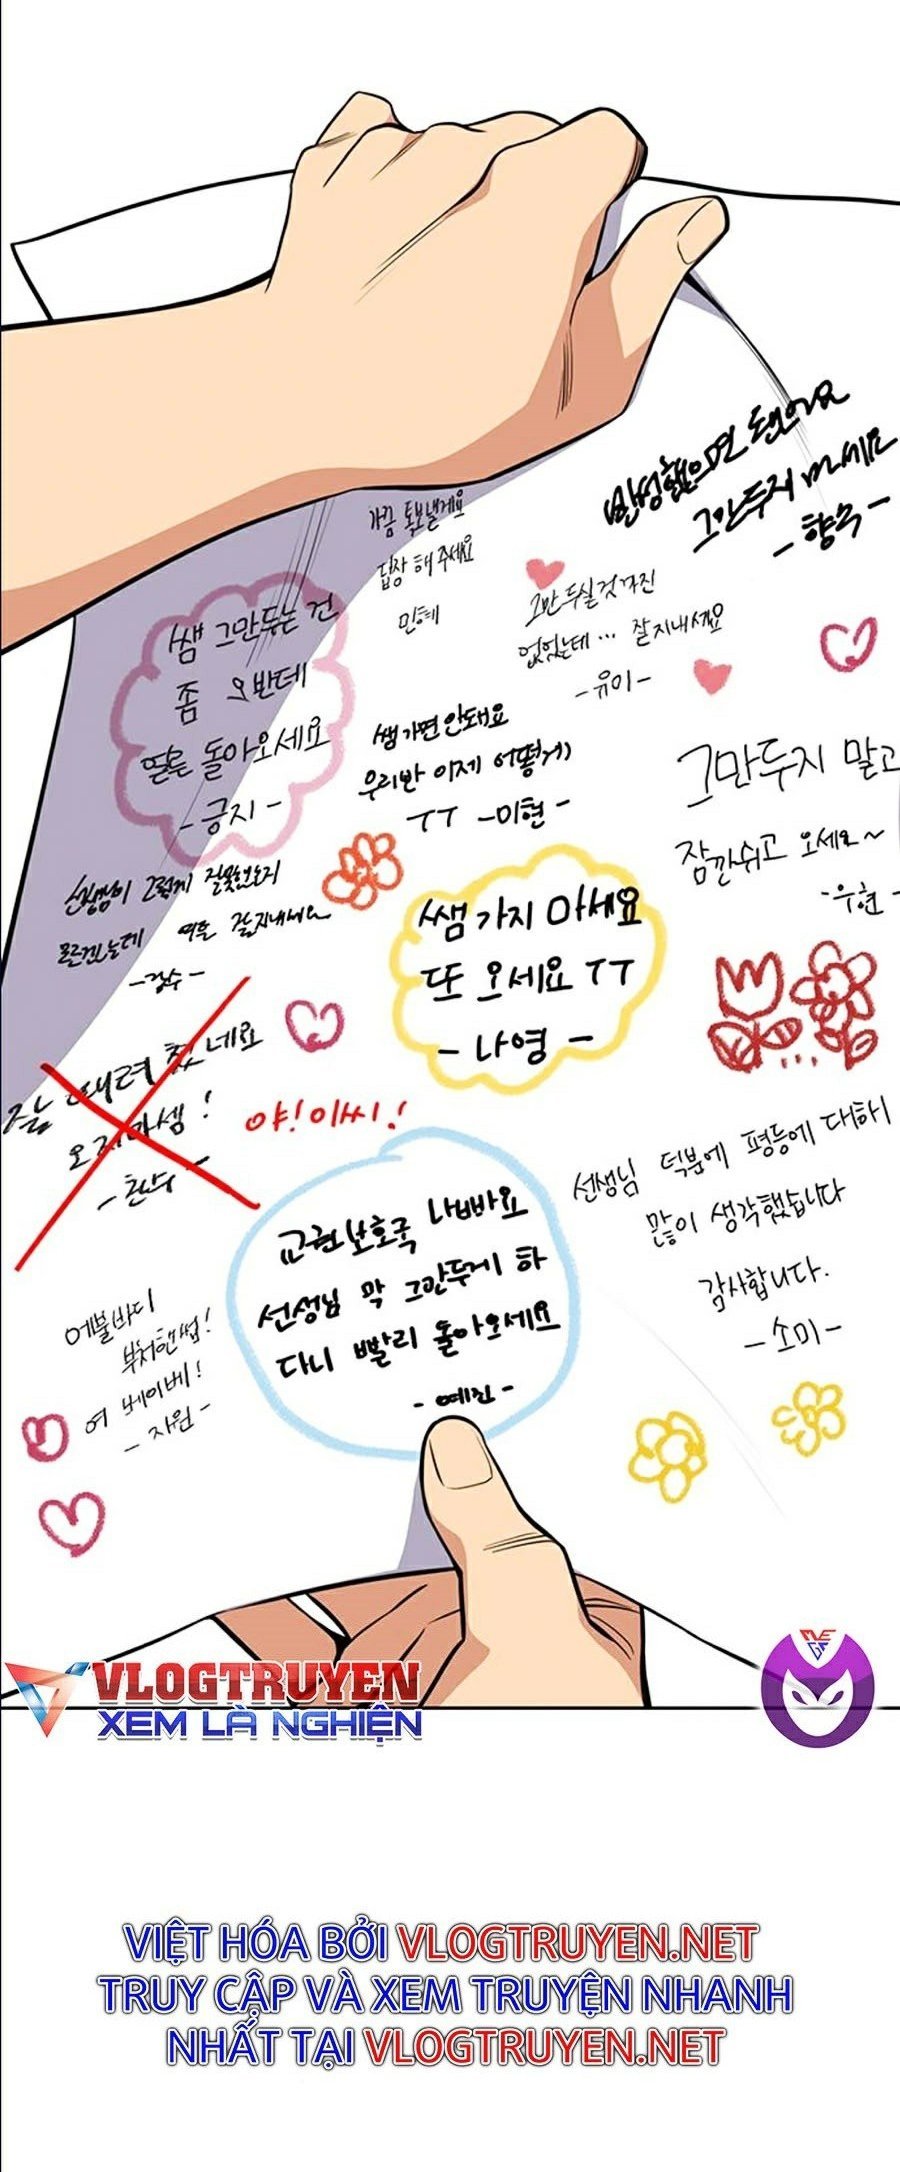 반성했으면 됐어요
그만두지 마세요
- 향숙 -
가끔 톡보낼게요
답장 해 주세요
민혜
그만 두실 것 까진
없었는데... 잘 지내세요
- 유이 -
쌤 그만두는 건
좀 오반데
얼른 돌아오세요
- 긍지 -
쌤 가면 안돼요
우리반 이제 어떻게
ㅜㅜ - 미현 -
그만두지 말고
잠깐 쉬고 오세요~
- 우현 -
선생님이 그렇게 잘못했는지
모르겠는데 여튼 잘지내세요
- 경수 -
쌤 가지 마세요
또 오세요 ㅜㅜ
- 나영 -
때려 쳤네요
오지마셈!
- 환수 -
야! 이씨!
선생님 덕분에 평등에 대해
많이 생각했습니다
감사합니다.
- 소미 -
교권보호국 나빠요
선생님 막 그만두게 하
다니 빨리 돌아오세요
- 예진 -
에블바디
부처핸썹!
여 베이베!
- 지원 -
NET
VLOGTRUYEN
XEM LÀ NGHIỆN
VIỆT HÓA BỞI VLOGTRUYEN.NET
TRUY CẬP VÀ XEM TRUYỆN NHANH
NHẤT TẠI VLOGTRUYEN.NET